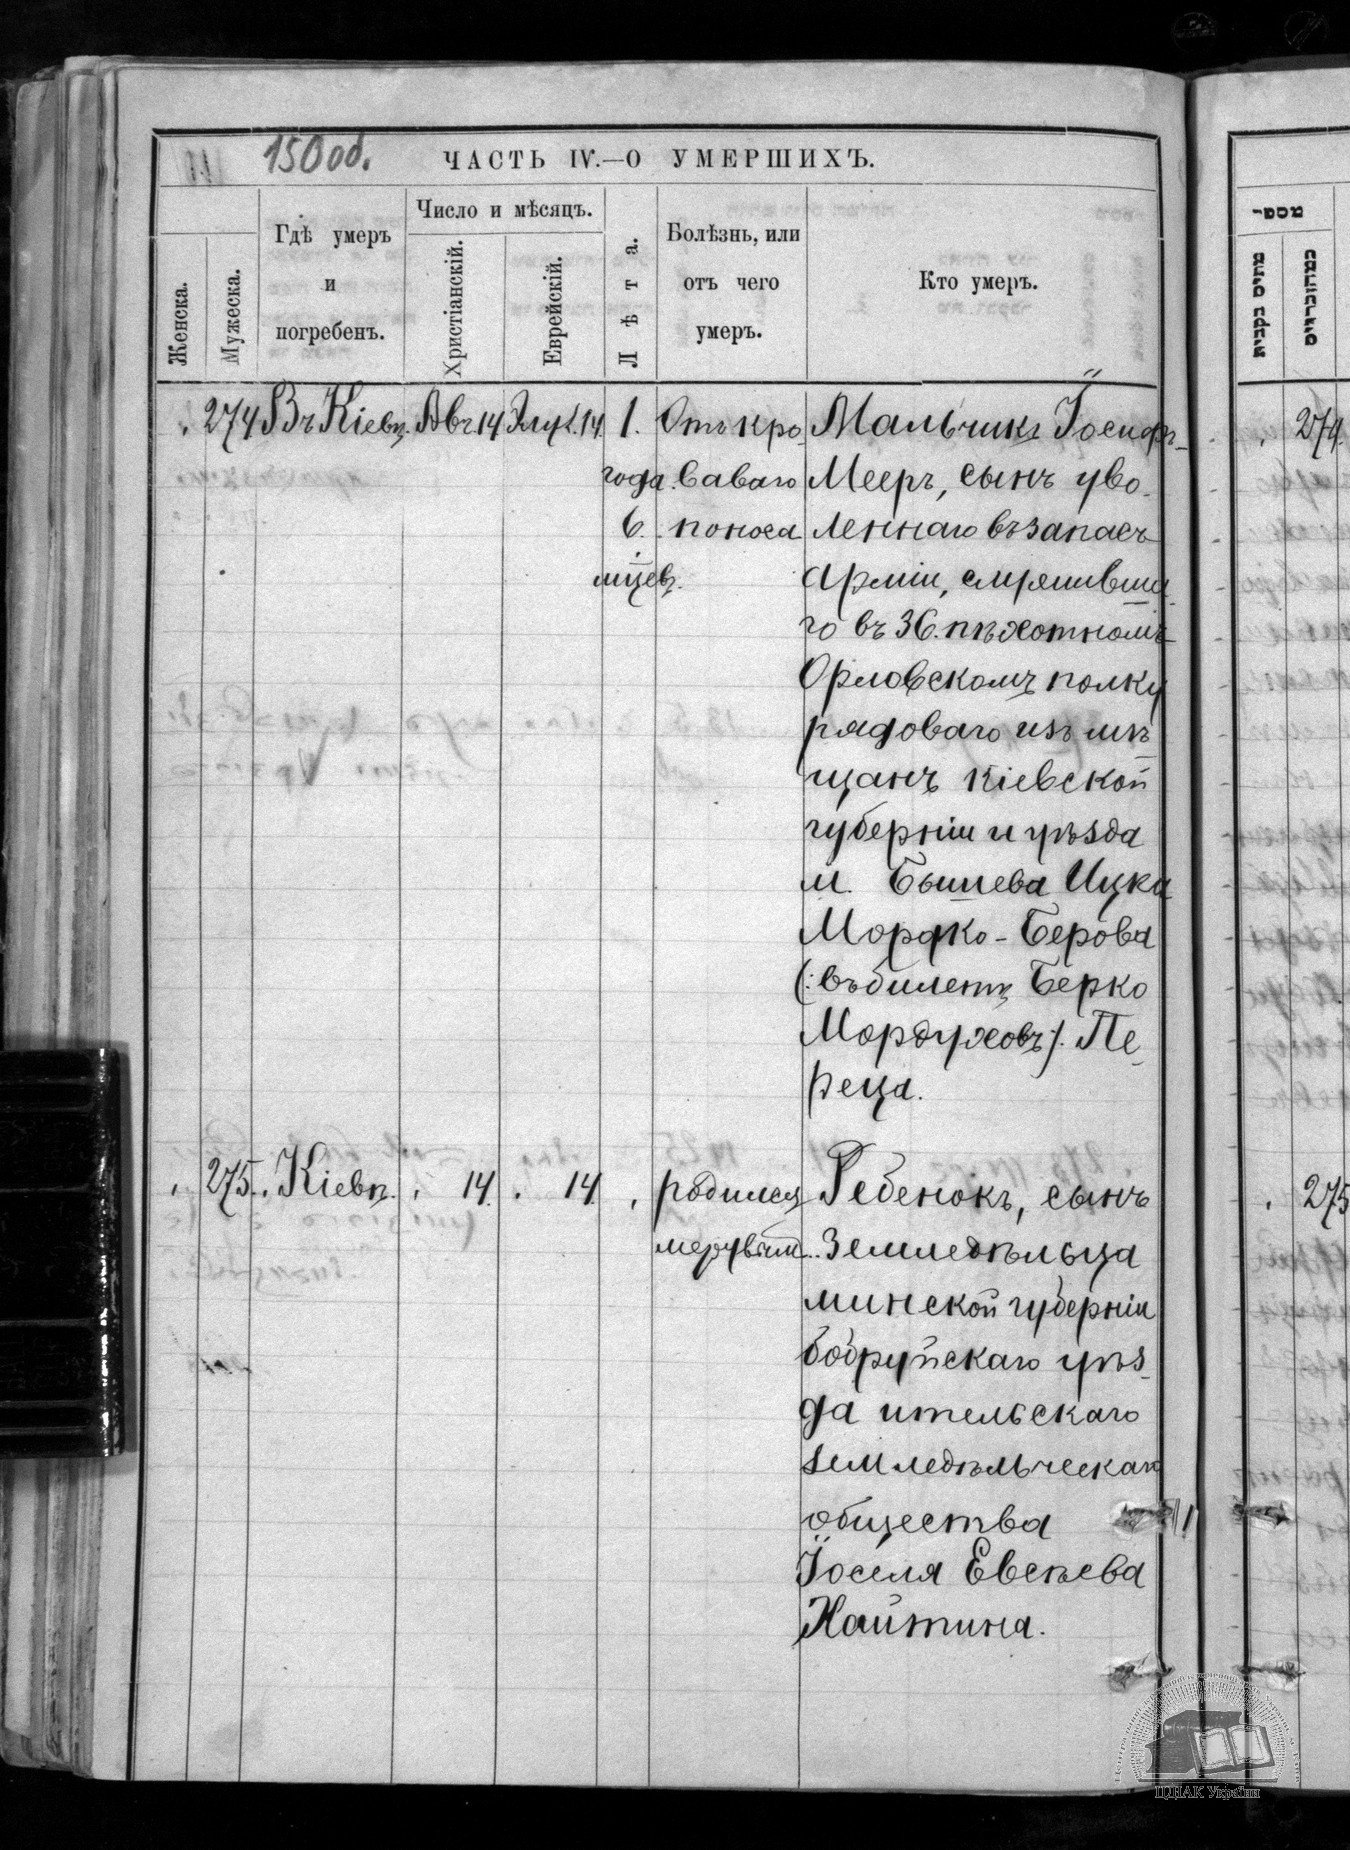 150 об.
ЧАСТЬ IV.—О УМЕРШИХЪ.
Женска.
Мужеска.
Гдѣ умеръ
и
погребенъ.
Число и мѣсяцъ.
Христіанскій.
Еврейскій.
Лѣта.
Болѣзнь, или
отъ чего
умеръ.
Кто умеръ.
מספר
מתים נקבות
274 Въ Кіевѣ. Авг. 14 Элул. 14. 1. Отъ кро- Мальчикъ Іосифъ-
года. ваваго Мееръ, сынъ уво-
6. поноса леннаго въ запасъ
мцевъ. Арміи, служивша-
го въ 36. пѣхотномъ
Орловскомъ полку
рядоваго изъ мѣ
щанъ Кіевской
губерніи и уѣзда
м. Бышева Ицка
Мордко-Берова
(: въ билетѣ Берко
Мордуховъ :). Пе-
реца.
275. Кіевѣ. 14. 14. родился Ребенокъ, сынъ
мертвымъ. земледѣльца
минской губерніи
бобруйскаго уѣз-
да ительскаго
земледѣльческаго
общества
Іоселя Евсѣева
Хайтина.
274.
275
ЦДІАК України